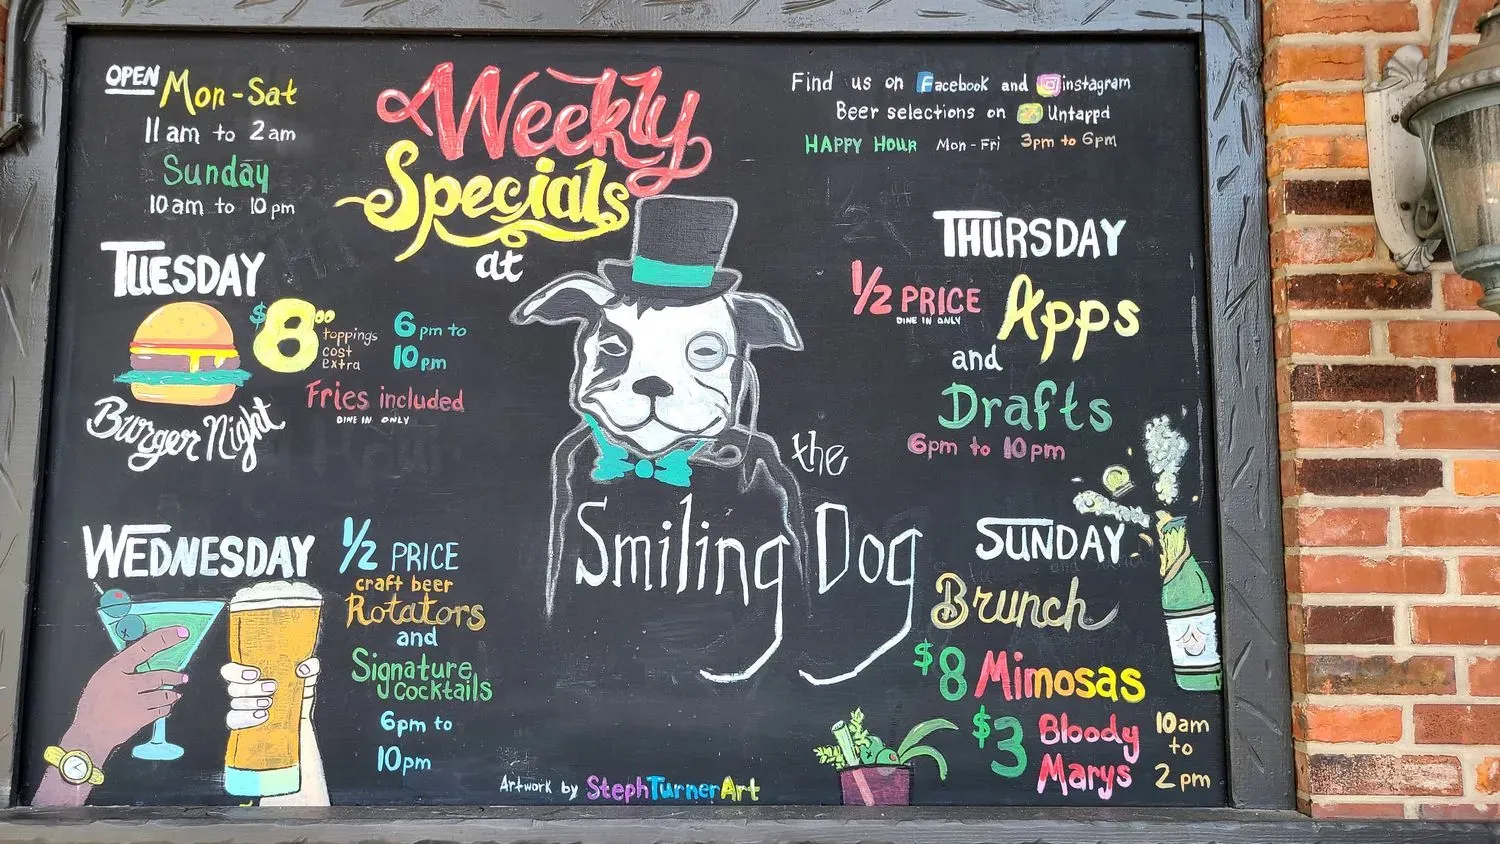 OPEN Mon-Sat
11am to 2am
Sunday
10am to 10pm
Weekly
Specials
at
the
Smiling Dog
Find us on Facebook and instagram
Beer selections on Untappd
HAPPY HOUR Mon-Fri 3pm to 6pm
TUESDAY
$8.00
toppings
cost
extra
6pm to
10pm
Fries included
DINE IN ONLY
Burger Night
WEDNESDAY
1/2 PRICE
craft beer
Rotators
and
Signature
cocktails
6pm to
10pm
THURSDAY
1/2 PRICE
DINE IN ONLY
Apps
and
Drafts
6pm to 10pm
SUNDAY
Brunch
$8 Mimosas
$3 Bloody
Marys
10am
to
2pm
Artwork by StephTurnerArt